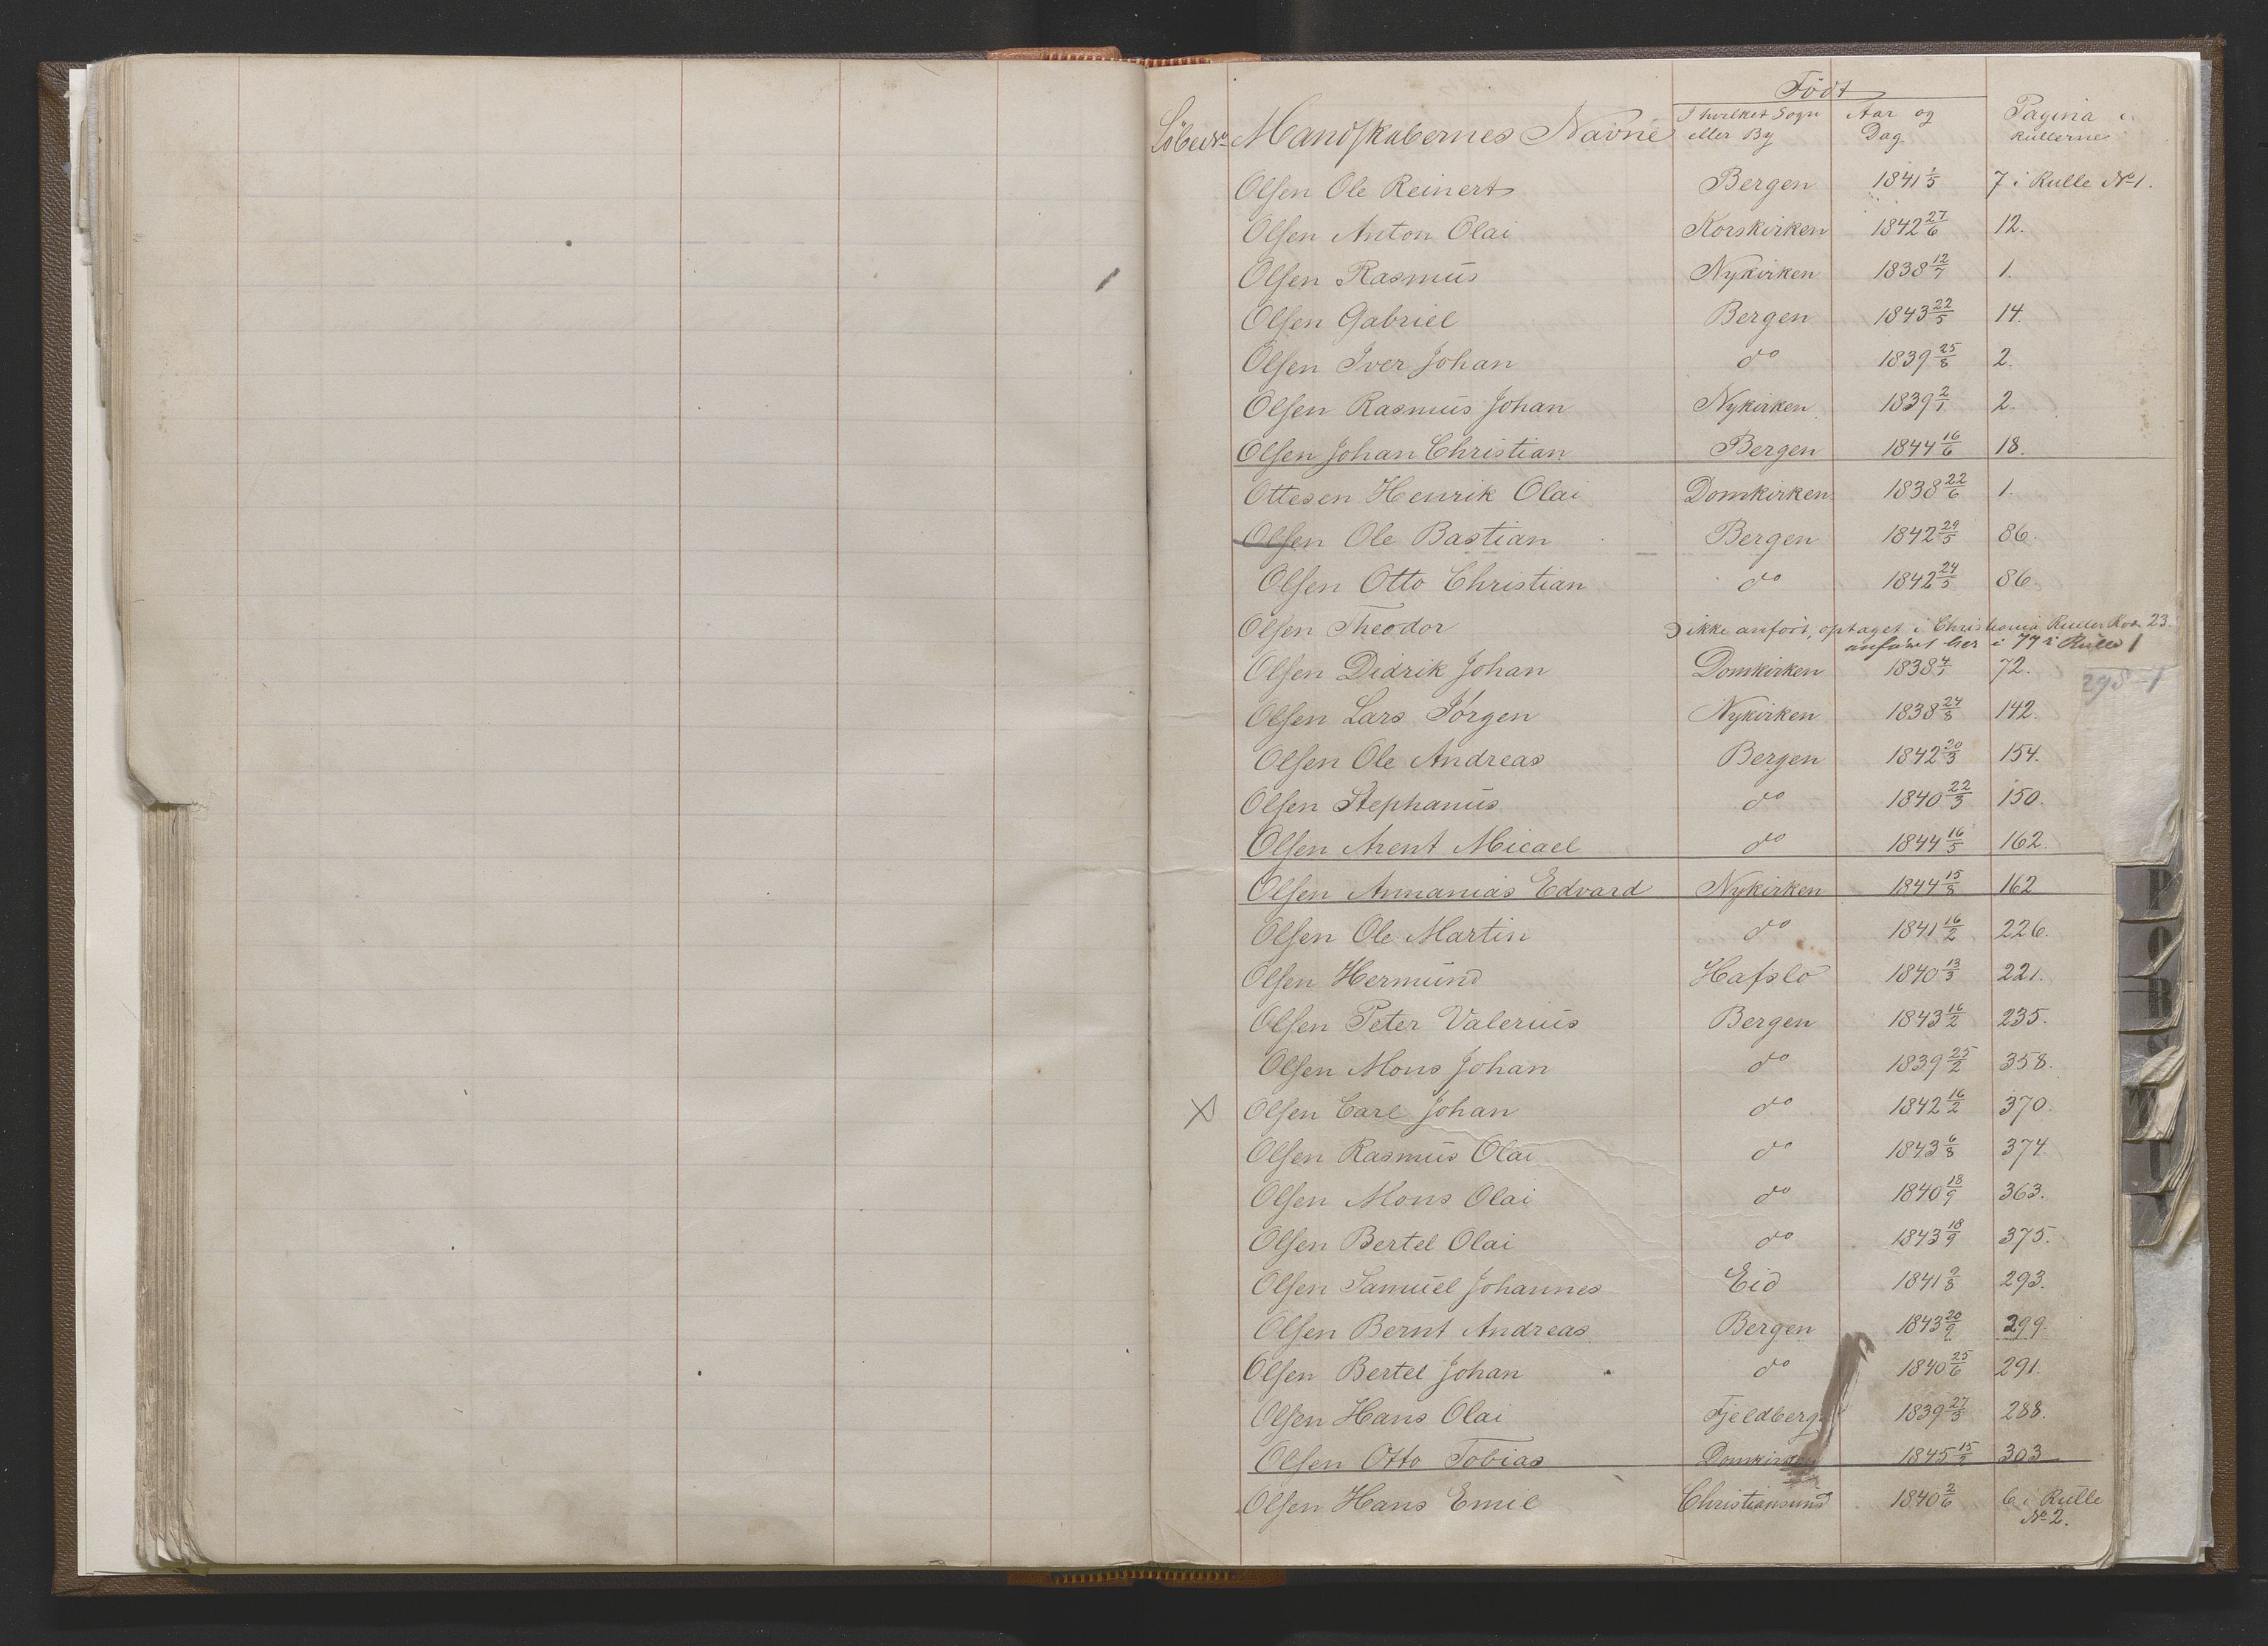 Födt
Löbe No Mandskabernes Navne I hvilket Sogn eller By Aar og Dag Pagina i Rullerne
Olsen Ole Reinert Bergen 1841 1/5 7 i Rulle No 1.
Olsen Anton Olai Korskirken 1842 27/6 12.
Olsen Rasmus Nykirken 1838 12/7 1.
Olsen Gabriel Bergen 1843 22/5 14.
Olsen Iver Johan do 1839 25/8 2.
Olsen Rasmus Johan Nykirken 1839 2/1 2.
Olsen Johan Christian Bergen 1844 16/6 18.
Ottesen Henrik Olai Domkirken 1838 22/6 1.
Olsen Ole Bastian Bergen 1842 29/5 86.
Olsen Otto Christian do 1842 24/5 86.
Olsen Theodor ikke anfört, optaget i Christiania Ruller 23.
anfört her i 77 i Rulle 1
Olsen Didrik Johan Domkirken 1838 4/1 72.
298-1
Olsen Lars Jörgen Nykirken 1838 24/8 142.
Olsen Ole Andreas Bergen 1842 20/3 154.
Olsen Stephanus do 1840 22/3 150.
Olsen Arent Micael do 1844 16/5 162.
Olsen Annanias Edvard Nykirken 1844 15/8 162
Olsen Ole Martin do 1841 16/2 226.
Olsen Hermund Hafslo 1840 13/3 221.
Olsen Peter Valerius Bergen 1843 16/2 235.
Olsen Mons Johan do 1839 25/2 358.
X Olsen Carl Johan do 1842 16/2 370.
Olsen Rasmus Olai do 1843 6/8 374.
Olsen Mons Olai do 1840 18/9 363.
Olsen Bertel Olai do 1843 18/9 375.
Olsen Samuel Johannes Eid 1841 9/8 293.
Olsen Bernt Andreas Bergen 1843 20/9 299.
Olsen Bertel Johan do 1840 25/6 291.
Olsen Hans Olai Fjeldberg 1839 27/3 288.
Olsen Otto Tobias 1845 303
Olsen Hans Emil Christiansund 1840 2/6 6 i Rulle
No 2.
P
O
R
T